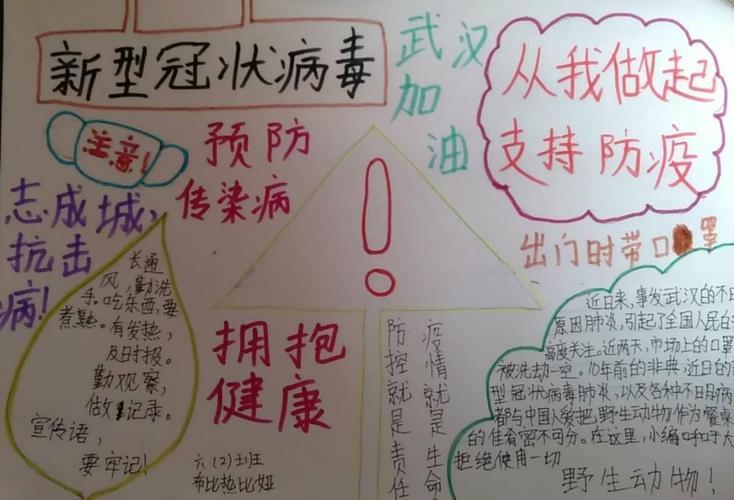 新型冠状病毒
武汉
加
油
从我做起
支持防疫
注意!
预防
传染病
志成城,
抗击
病!
出门时带口罩
长通
风,勤洗
手.吃东西,要
煮熟。有发热,
及时报。
勤观察,
做记录。
宣传语,
要牢记!
拥抱
健康
!
疫情就是生命
防控就是责任
六(2)班
布比热比娅
近日来,事发武汉的不明
原因肺炎,引起了全国人民的
高度关注。近两天,市场上的口罩
被洗劫一空。10年前的非典,近日的新
型冠状病毒肺炎,以及各种不明病
都与中国人爱把野生动物作为餐桌
的佳肴密不可分。在这里,小编呼吁大
拒绝使用一切
野生动物!